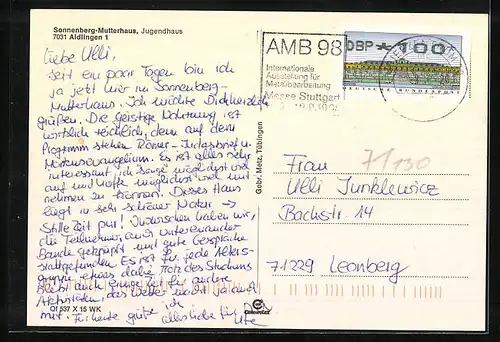 Sonnenberg-Mutterhaus, Jugendhaus
7031 Aidlingen 1
Liebe Ulli,
seit ein paar Tagen bin ich
ja jetzt hier im Sonnenberg-
Mutterhaus. Ich möchte Dich herzlich
grüßen. Die geistige Nahrung ist
wirklich reichlich, denn auf dem
Programm stehen Römer-, Judasbrief u.
Markusevangelium. Es ist alles sehr
interessant, ich "sauge" möglichst viel
auf und hoffe möglichst viel mit
nehmen zu können. Dieses Haus
liegt in sehr schöner Natur →
Stille Zeit pur! Inzwischen haben wir,
die Teilnehmer, auch untereinander
Bande geknüpft und gute Gespräche
stattgefunden. Es ist für jede Alters-
gruppe etwas dabei. Trotz des Studiums
bleibt auch einige Zeit für andere
Aktivitäten, das Wetter macht ja auch
mit. Für heute gute
alles liebe Ute
Of 537 X 15 WK
Gebr. Metz, Tübingen
AMB 98
Internationale
Ausstellung für
Metallbearbeitung
Messe Stuttgart
DBP 100
DEUTSCHE BUNDESPOST
71130
Frau
Ulli Junklewicz
Bachstr. 14
71229 Leonberg